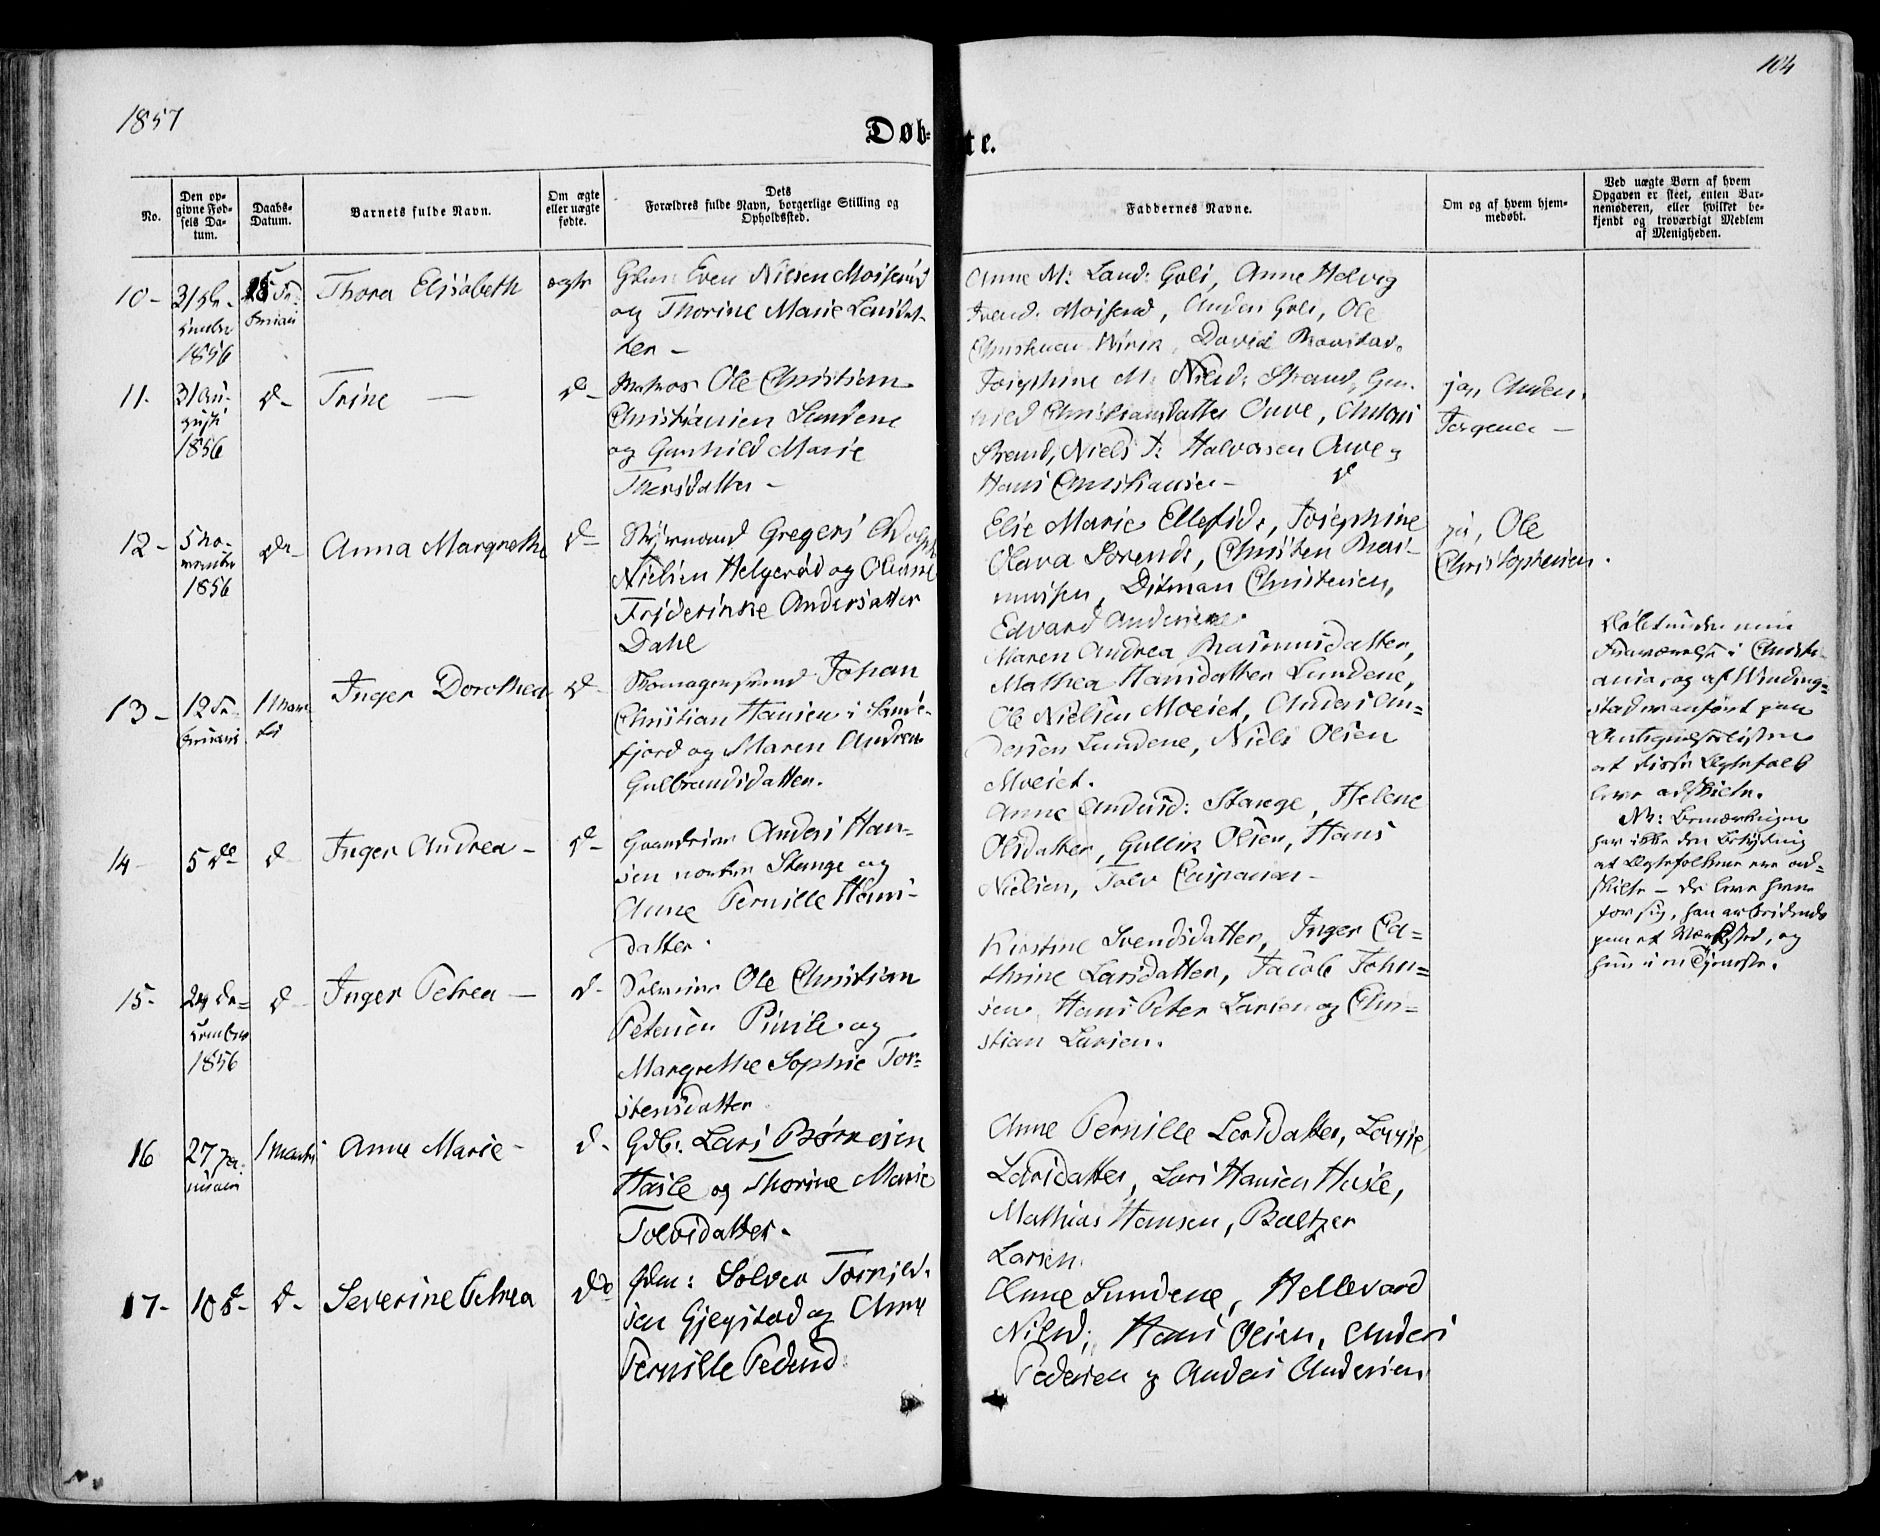 1857
104
Døb-
te.
No.
Den op-
givne Fød-
sels Da-
tum.
Daabs-
Datum.
Barnets fulde Navn.
Om ægte
eller uægte
fødte.
Dets
Forældres fulde Navn, borgerlige Stilling og
Opholdssted.
Faddernes Navne.
Om og af hvem hjem-
medøbt.
Ved uægte Børn af hvem
Opgaven er skeet, enten Bar-
nemoderen, eller hvilket be-
kjendt og troværdigt Medlem
af Menigheden.
10-
1856
Thora Elisabeth
ægte
Even Nielsen
og Thorine Marie Larsdat-
ter -
Anne M: Land: Goli, Anne Helvig
Anders Goli, Ole
David
11-
31 Au-
gust
1856
d-
Trine -
d-
Matros Ole Christian
Christiansen Lundene
og Gunhild Marie
Thorsdatter -
Josephine M: Nilsd: Strand, Gun-
nild Christiansdatter Auve,
Strand, Niels J: Halvorsen Auve
Hans Christiansen -
ja, Anders
Jørgensen -
12-
5 No-
vember
1856
do-
Anna Margrethe
d-
Styrmand Gregers Adolph
Nielsen Helgerød og Oliane
Friderikke Andersdatter
Dahl
Elie Marie Ellefsd:, Josephine
Olava Sørensd:, Christen Rasi-
musen, Ditman Christensen,
Edvard Andersen.
ja, Ole
Christophersen.
13-
12 Fe-
bruari
1 Mar-
ts
Inger Dorothea
d-
Skomagersvend Johan
Christian Hansen i Sande-
fjord og Maren Andrea
Gulbrandsdatter.
Maren Andrea Rasmusdatter,
Mathea Hansdatter Lundene,
Ole Nielsen Moeiet, Anders An-
dersen Lundene, Niels Olsen
Moeiet.
Døbt under min
Fraværelse i Christi-
ania, og af Winding-
stad anført paa
at disse Ægtefolk
leve adskilte.
NB: Bemærkningen
har ikke den Betydning
at Ægtefolkene ere ad-
skilte - de leve hver
for sig, han arbeidende
paa et Værksted, og
hun i en Tjeneste.
14-
5 de
d
Inger Andrea -
d-
Anders Han-
sen nordre Stange og
Anne Pernille Hans-
datter.
Anne Andersd: Stange, Helene
Olsdatter, Gullik Olsen, Hans
Nielsen, Tolv Casparsen -
15-
24 De-
cember
1856
d-
Inger Petrea -
d-
Ole Christian
Petersen og
Margrethe Sophie Tor-
stensdatter
Kirstine Svendsdatter, Inger Ca-
thrine Larsdatter, Jacob John-
sen, Hans Peter Larsen og Chri-
stian Larsen.
16
27 Ja-
nuari
1 Marts
Anne Marie -
d-
Gdb: Lars Børresen
Hasle og Thorine Marie
Tolvsdatter.
Anne Pernille Larsdatter,
Larsdatter, Lars Hansen Hasle,
Mathias Hansen, Baltzer
Larsen.
17-
10 d-
d-
Severine Petrea
do
Gdm: Solver
sen Gjegstad og Anne
Pernille Pedersd:
Anne Lundene, Hellevard
Nilsd:, Hans Olsen, Anders
Pedersen og Anders Andersen